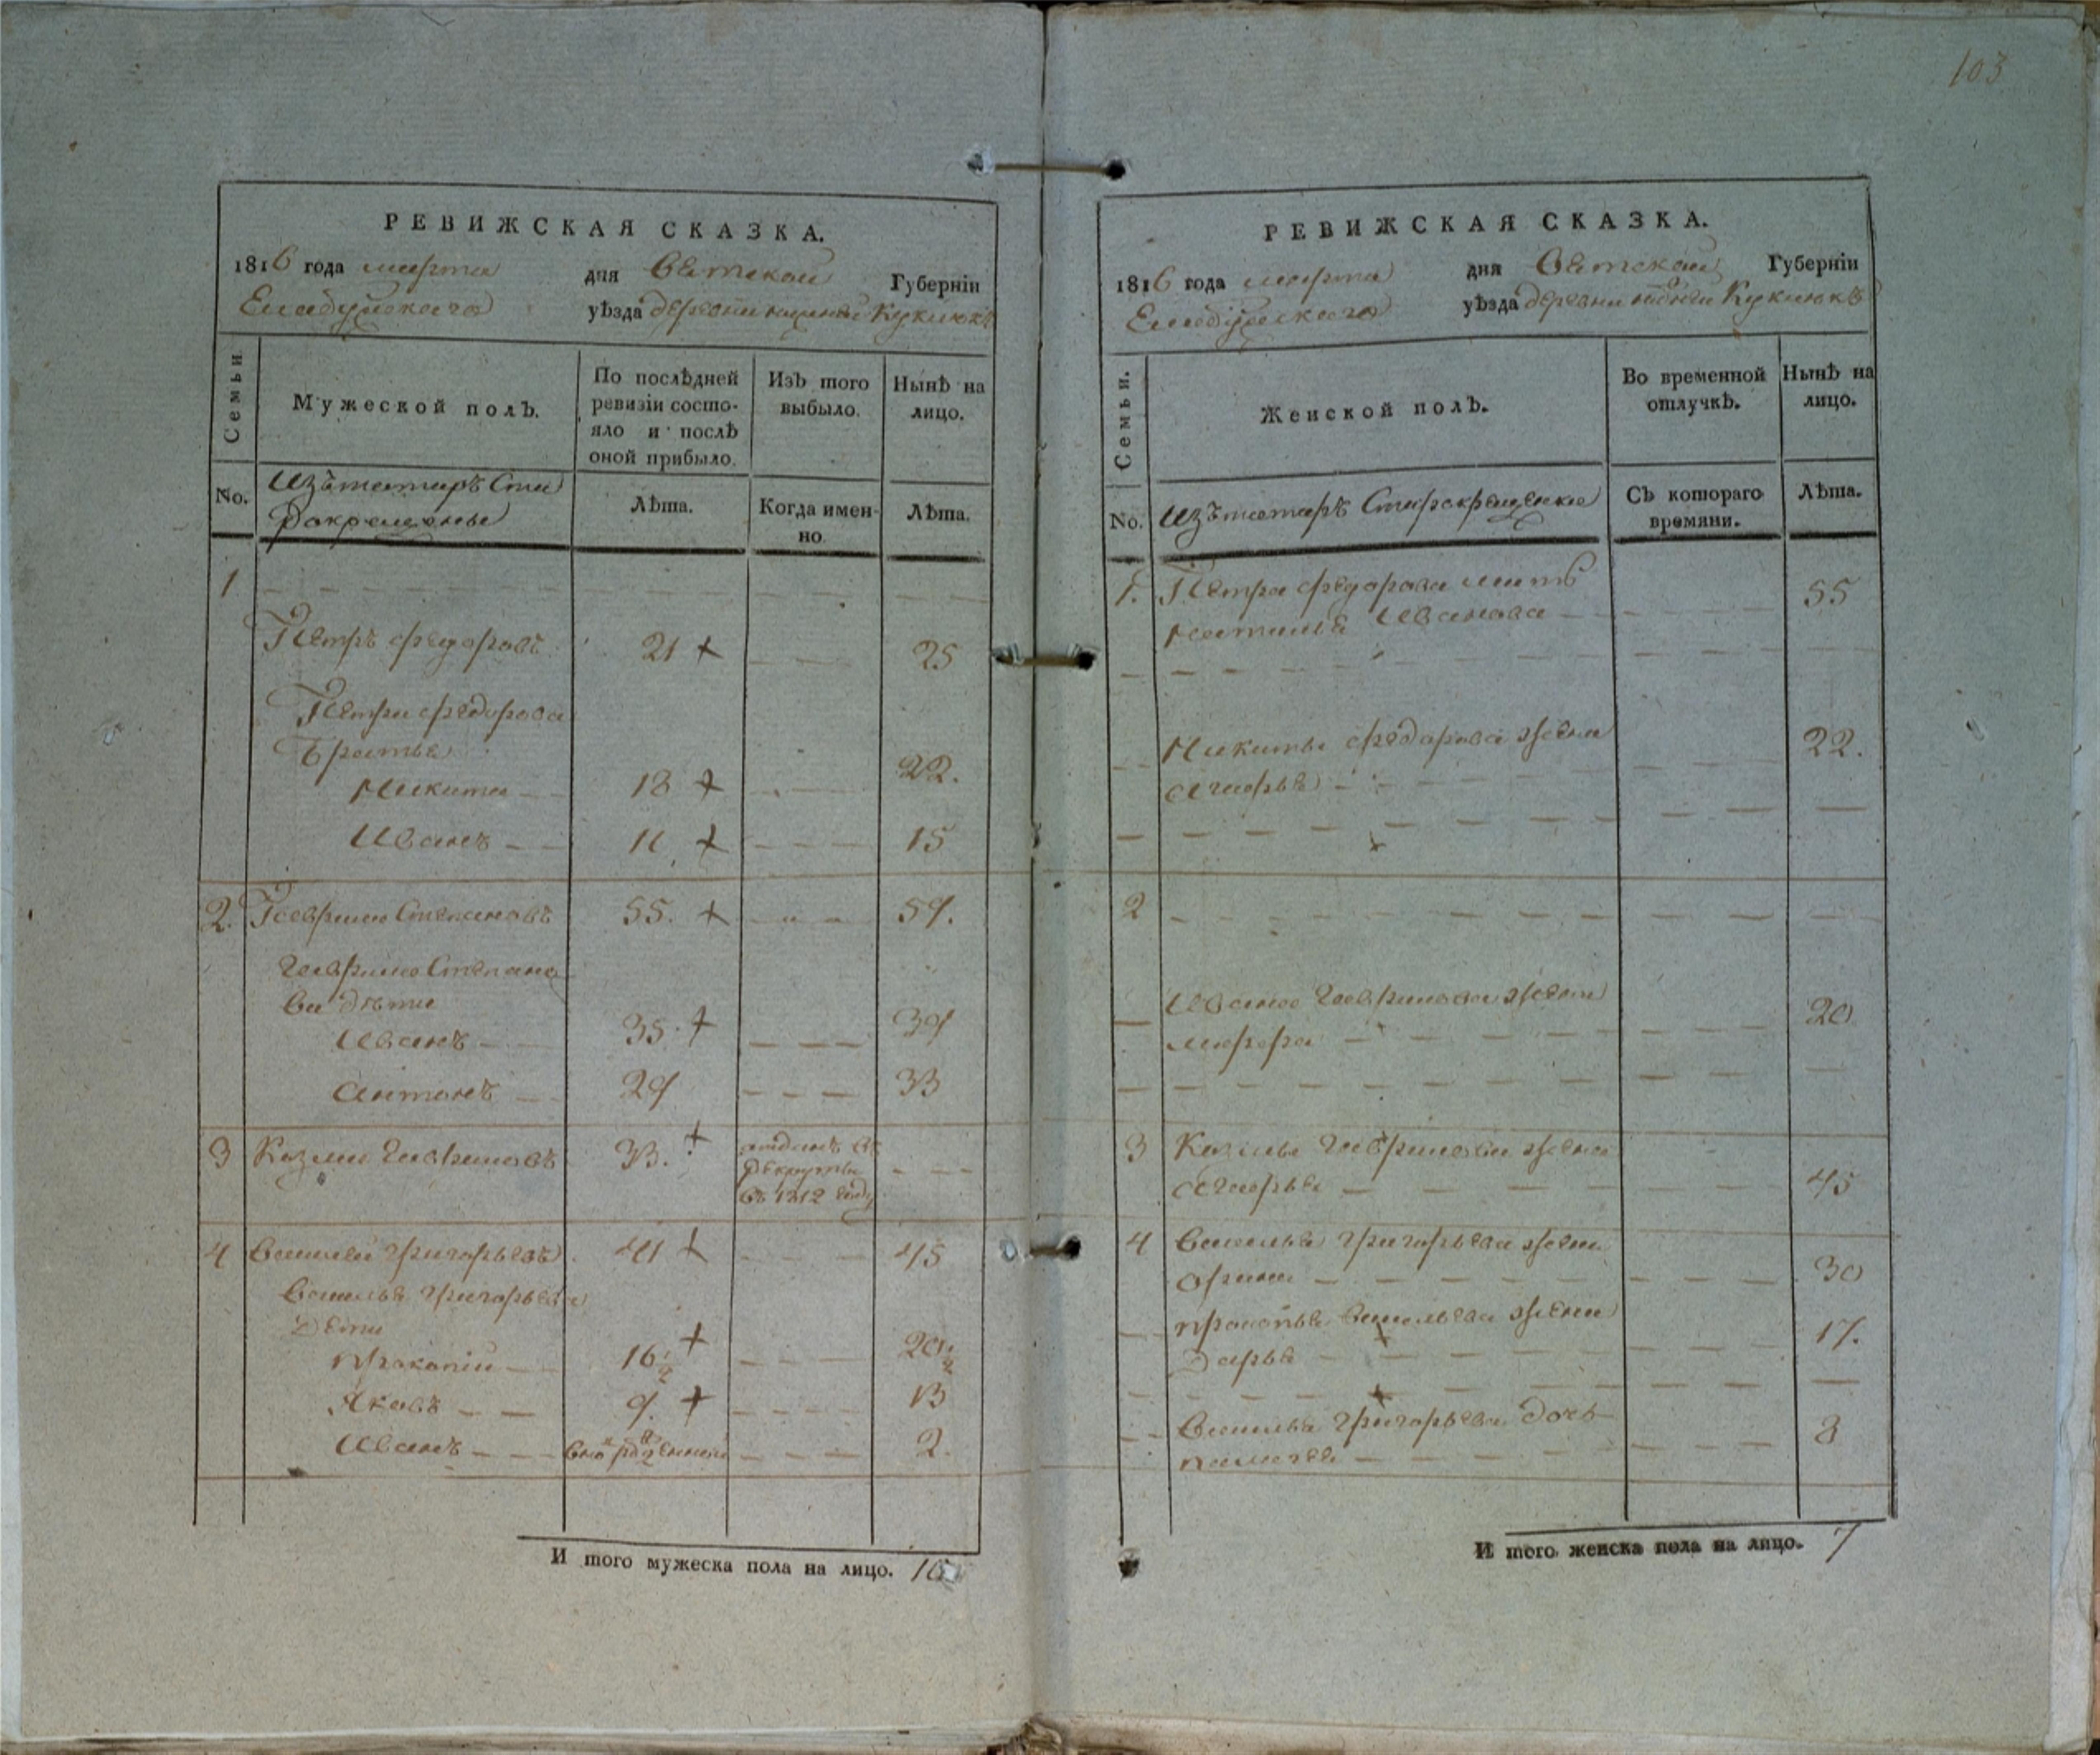 103
РЕВИЖСКАЯ СКАЗКА.
1816 года марта дня Вятской Губерніи
Елабужскаго уѣзда деревни Кукмокъ
Семьи.
Мужеской полъ.
По послѣдней ревизіи состояло и послѣ оной прибыло.
Изъ того выбыло.
Нынѣ на лицо.
No.
Изъ татаръ Ста
рокрещены
Лѣта.
Когда именно.
Лѣта.
1
Петръ Федоровъ 21 + 25
Петра Федорова
братья
Никита 18 + 22.
Иванъ 11 + 15
2. Гаврило Степановъ 55. + 59.
Гаврило Степано
ва дѣти
Иванъ 35 + 39
Антонъ 29 33
3 Козма Гавриловъ 33. + отданъ въ
рекруты
въ 1812 году
4 Василей Григорьевъ 41 + 45
Василья Григорьева
дети
Прокопій 16 1/2 + 20 1/2
Яковъ 9. + 13
Иванъ 2.
И того мужеска пола на лицо. 10
РЕВИЖСКАЯ СКАЗКА.
1816 года марта дня Вятской Губерніи
Елабужскаго уѣзда деревни Кукмокъ
Семьи.
Женской полъ.
Во временной отлучкѣ.
Нынѣ на лицо.
No.
Изъ татаръ Старокрещенъ
Съ котораго времяни.
Лѣта.
1. Петра Федорова мать
Наталья Иванова 55
Никиты Федорова жена
Марья 22.
2
Ивана Гаврилова жена
20
3 Козмы Гаврилова жена
Марья 45
4 Василья Григорьева жена
Орина 30
Прокопья Васильева жена
Дарья 17.
Василья Григорьева дочь
8
И того женска пола на лицо. 7